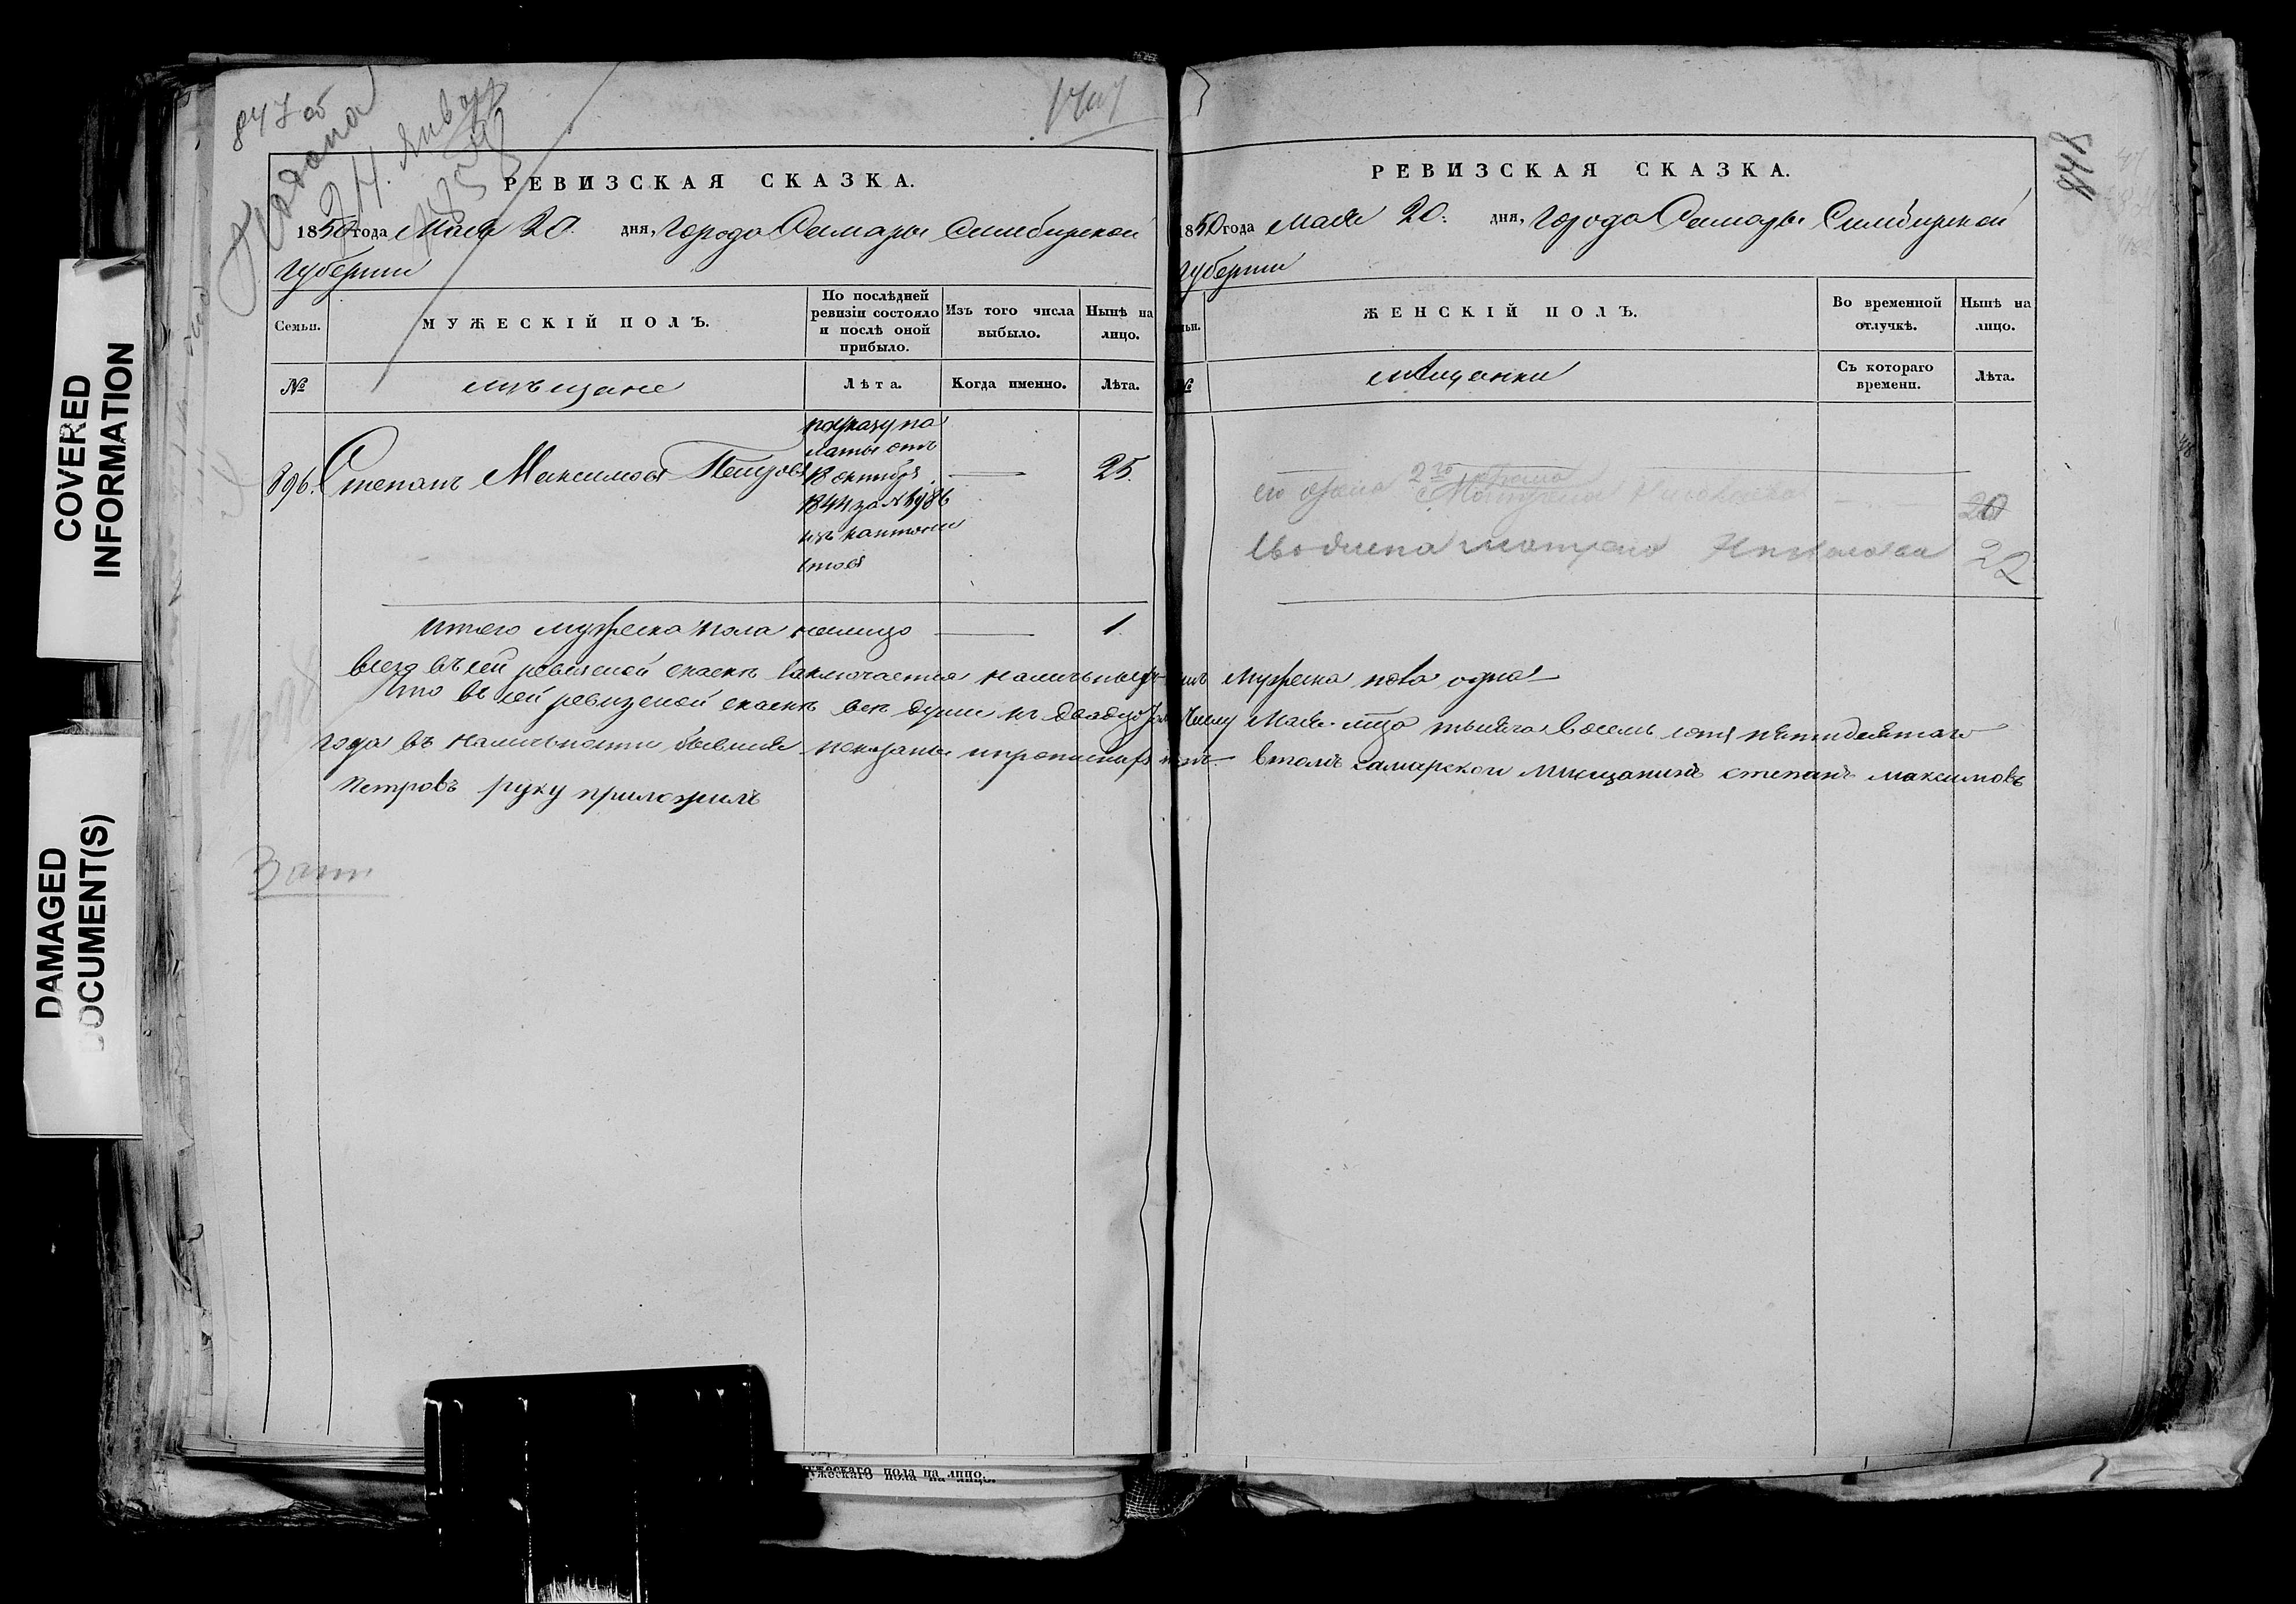 COVERED
INFORMATION
DAMAGED
DOCUMENT(S)
847 об
Подана
24. Январ
РЕВИЗСКАЯ СКАЗКА.
1850 года Мая 20. дня, Города Самары Симбирской
губернии
Семьи.
МУЖЕСКІЙ ПОЛЪ.
По послѣдней
ревизіи состояло
и послѣ оной
прибыло.
Изъ того числа
выбыло.
Нынѣ на
лицо.
№
мѣщане
Лѣта.
Когда именно.
Лѣта.
896. Степанъ Максимовъ Петровъ
по указу па
латы отъ
18 октября
1844 за № 8986
изъ кантони
стовъ
25.
Итого мужеска пола налицо 1.
всего въ сей ревизской сказкѣ заключается наличныхъ мужеска пола одна
Что въ сей ревизской сказкѣ все души къ двадцатому числу Мая м-ца тысяча восемь сотъ пятидесятаго
года въ наличности бывшия показаны и прописных нетъ в томъ самарской мищанинъ степанъ максимовъ
Петровъ руку приложилъ
848
РЕВИЗСКАЯ СКАЗКА.
1850 года Мая 20. дня, Города Самары Симбирской
губернии
ЖЕНСКІЙ ПОЛЪ.
Во временной
отлучкѣ.
Нынѣ на
лицо.
№
мѣщанки
Съ котораго
времени.
Лѣта.
его жена 2го брака
Матрена Николаева 20
Матрена Николаева 22
ужескаго пола на лицо.